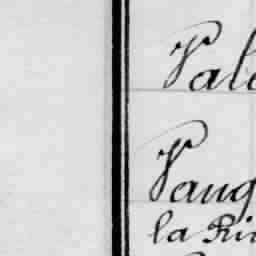 Vale
Vaug
la Ric